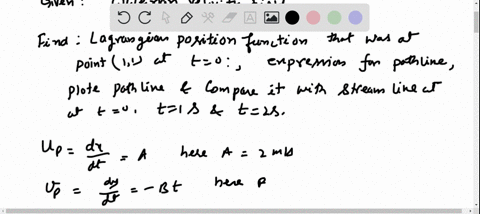 Find : Lagrangian position function that was at
point (1,1) at t=0:, expression for pathline,
plote pathline & Compare it with Stream line at
at t=0. t=1s & t=2s.
Up = dx/dt = A here A = 2 m/s
Vp = dy/dt = -Bt here B